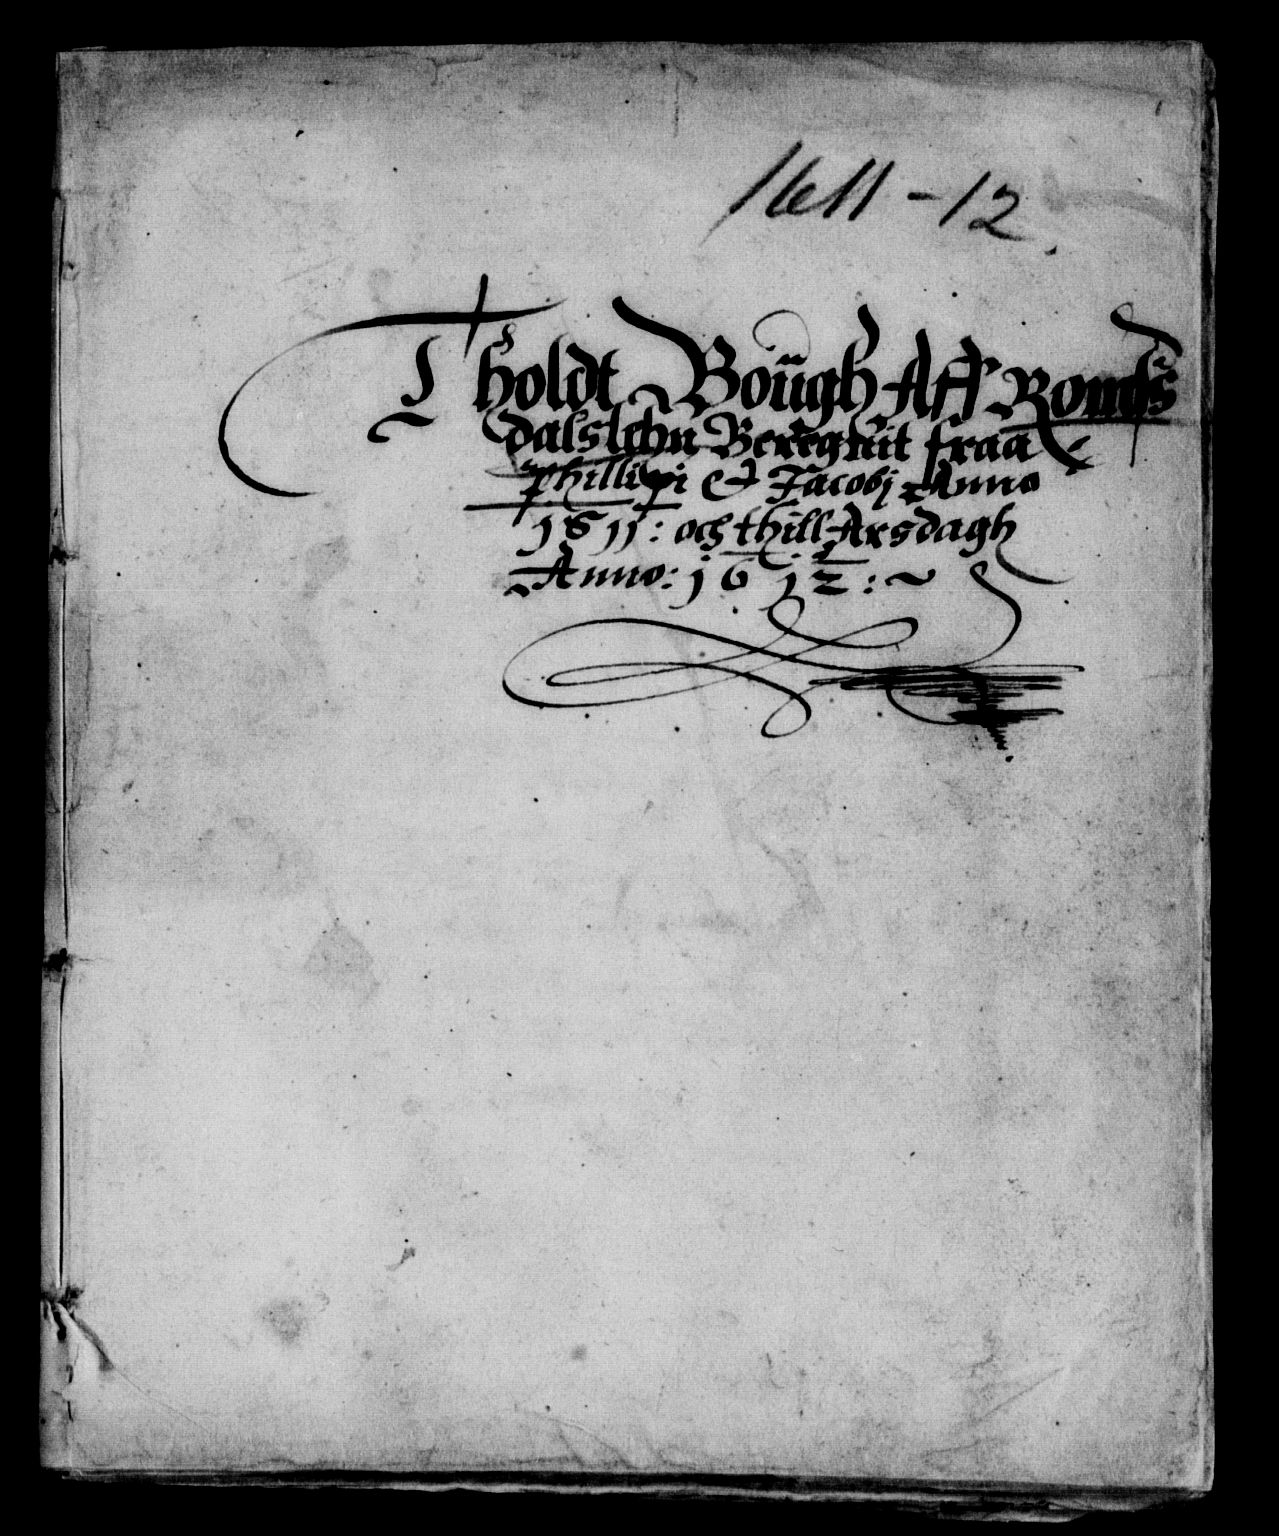 1611-12.
Tholdt Boügh Aff Romds
dalslehn Beregnit fraa
Phillipi et Jacobj Anno
1611: och thill Arsdagh
Anno: 1612: ~